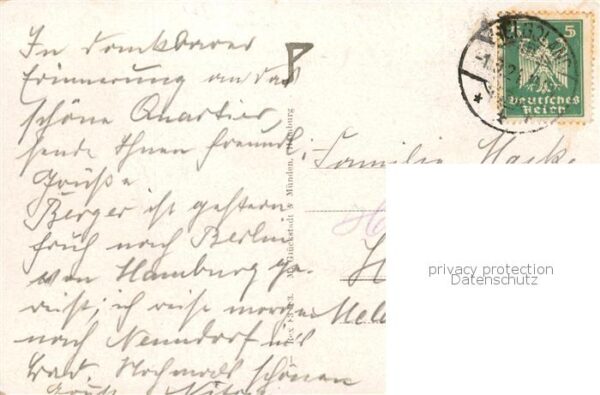 In dankbarer
Erinnerung an das
schöne Quartier,
sende Ihnen freundl.
Grüße
Berger ist gestern
früh nach Berlin
von Hamburg ge-
reist; ich reise morgen
nach Nenndorf ins
Bad. Nochmals schönen
Familie
5
Deutsches
Reich
M. Glückstadt & Münden, Hamburg
privacy protection
Datenschutz